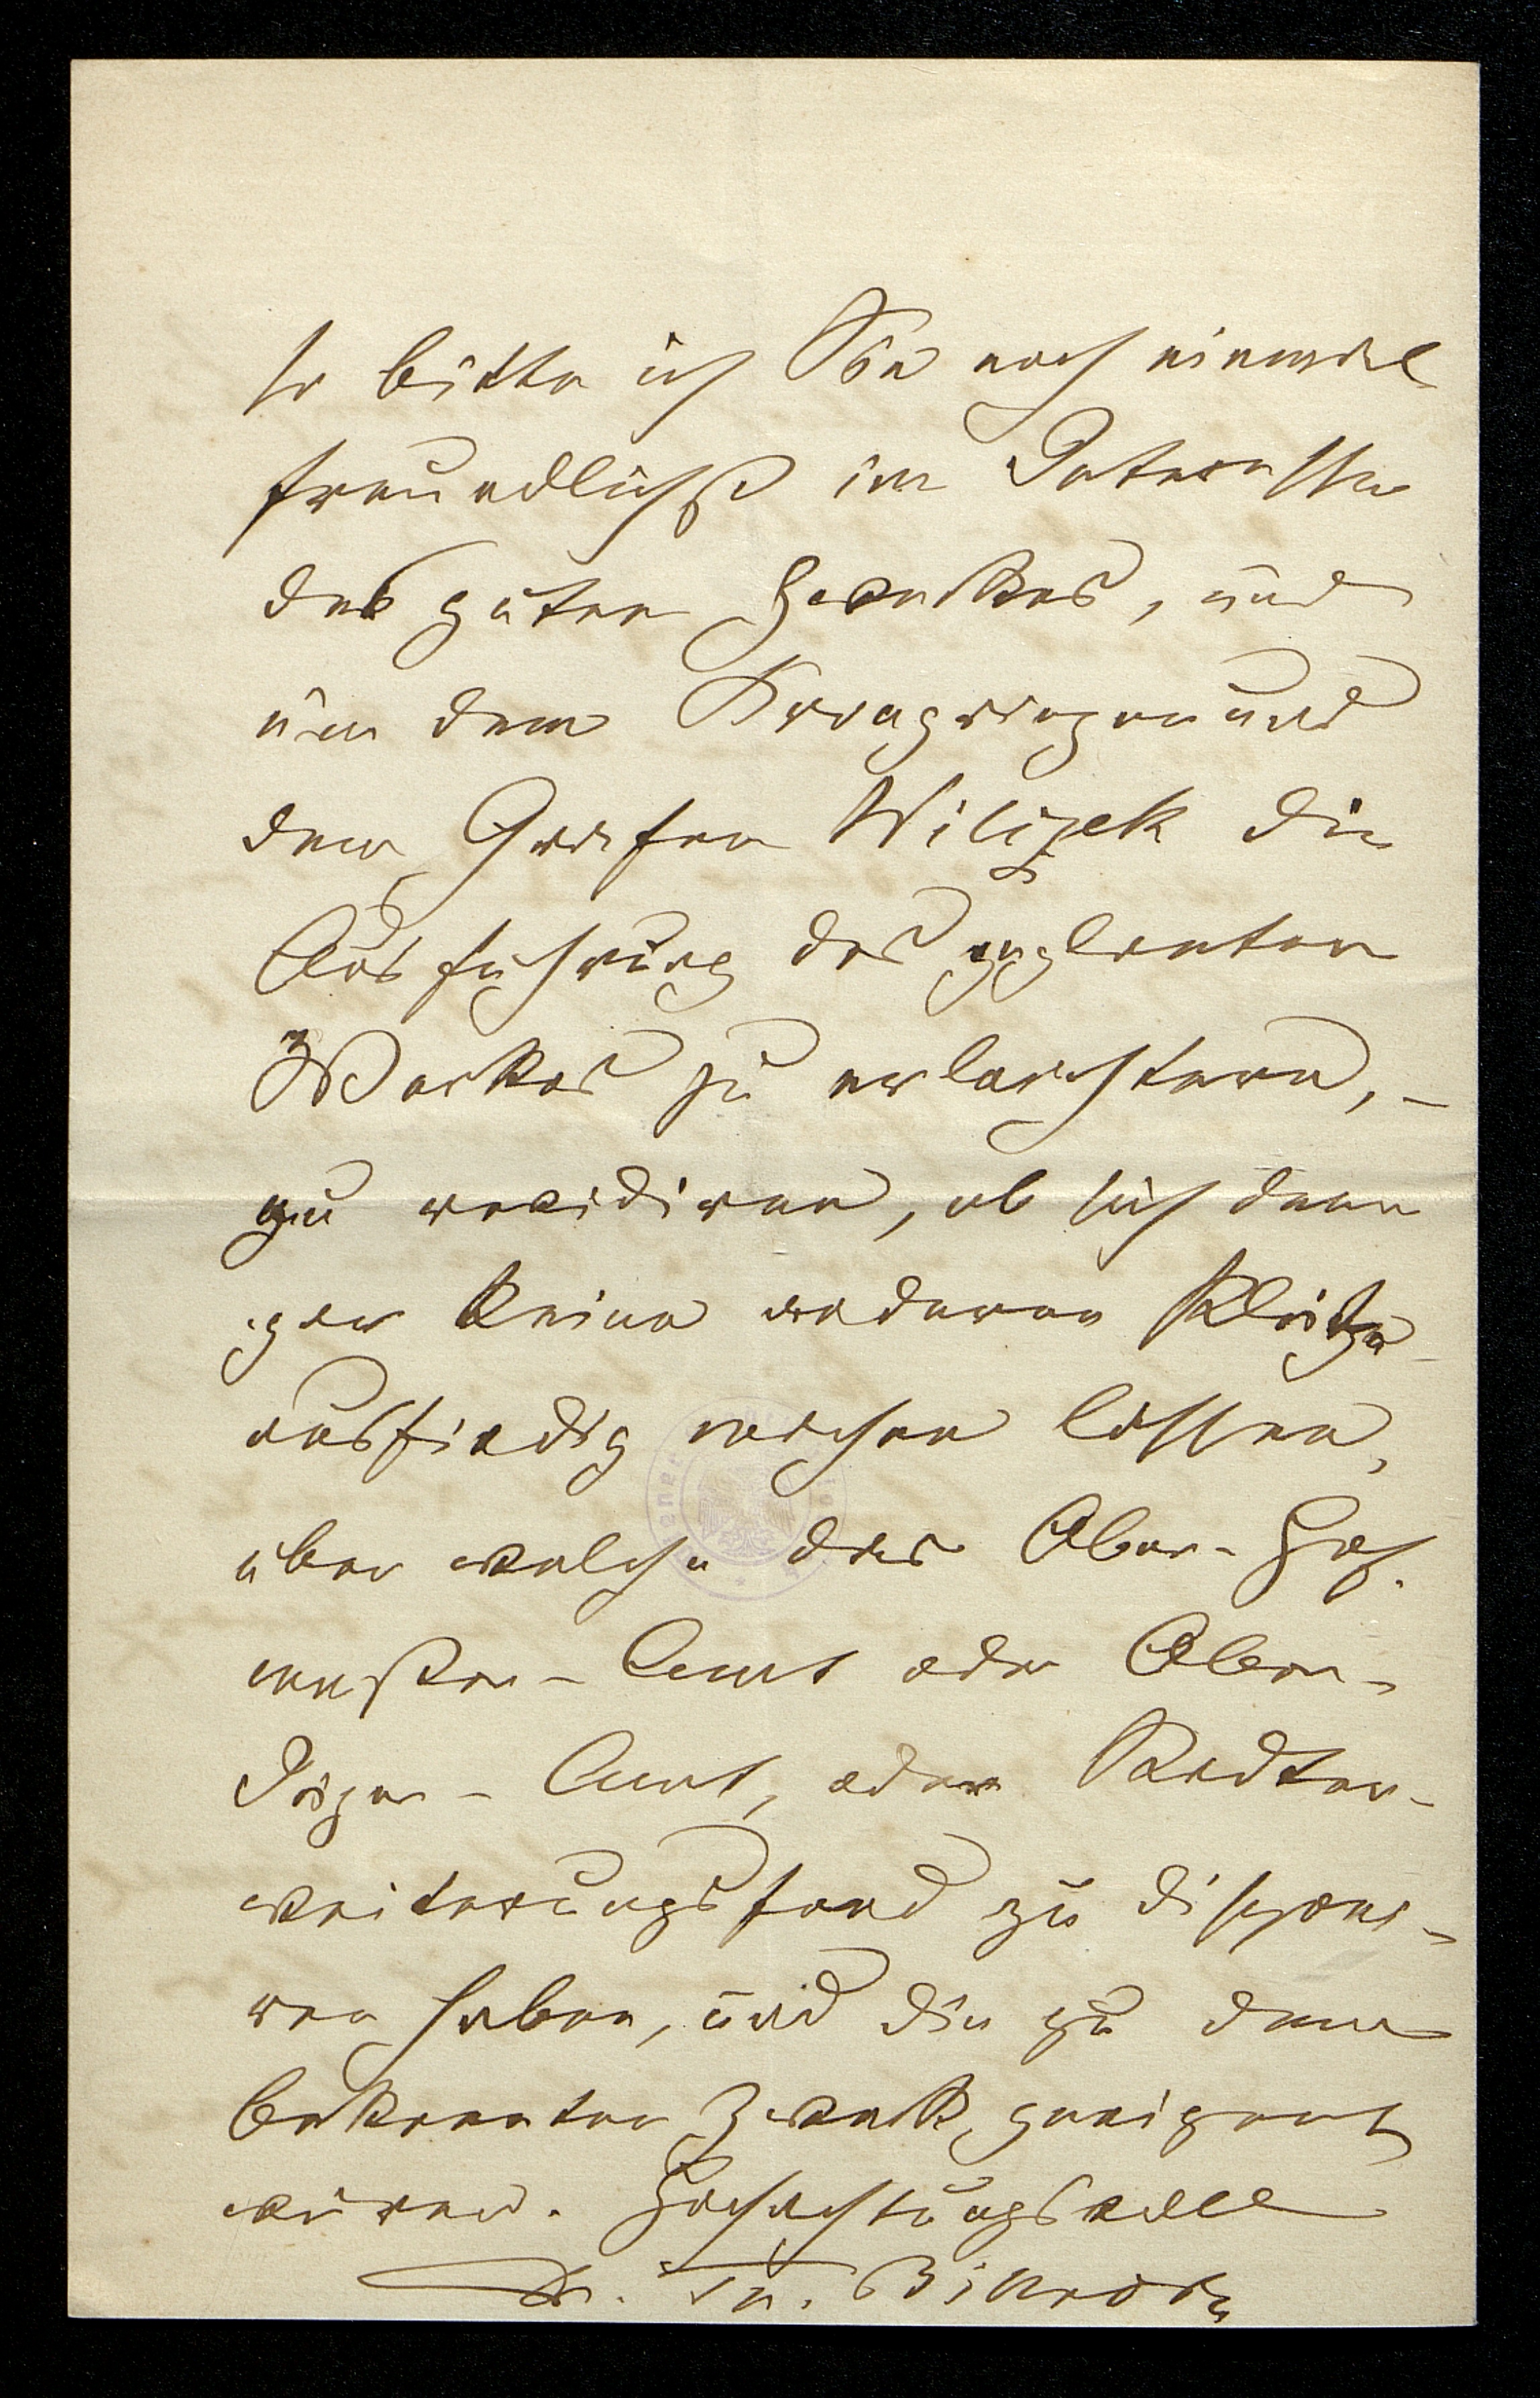 so bitte ich Sie noch einmal
freundlichst im Interesse
des guten Zweckes, und
um dem Kronprinzen und
dem Grafen Wilczek die
Ausführung des geplanten
Werkes zu erleichtern, –
zu revidiren, ob sich denn
gar keine anderen Plätze
ausfindig machen lassen,
über welche das Ober-Hof-
meister-Amt oder Ober-
Jäger-Amt, oder Stadter-
weiterungsfond zu disponi-
ren haben, und die zu dem
bekannten Zweck geeignet
wären. Hochachtungsvoll
Dr. Th. Billroth